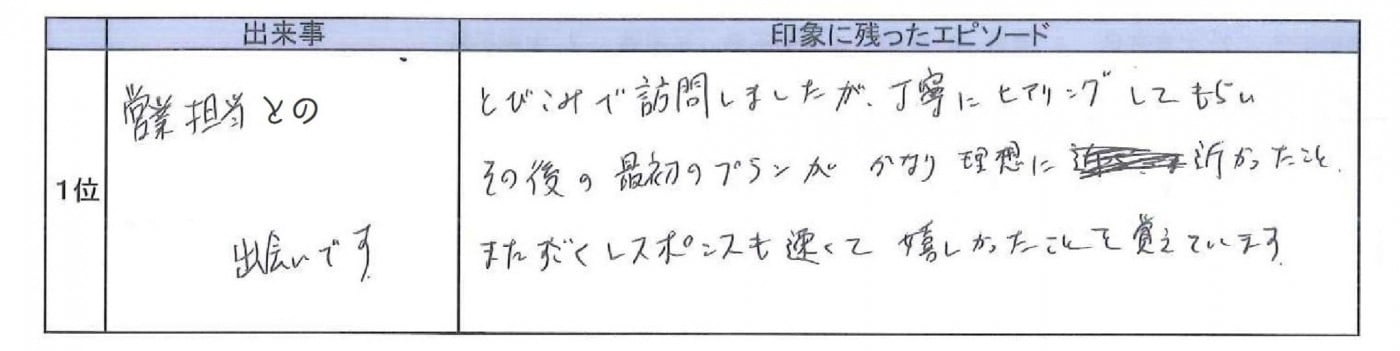 出来事 印象に残ったエピソード
1位
営業担当との
出会いです
とびこみで訪問しましたが、丁寧にヒアリングしてもらい
その後の最初のプランがかなり理想に近かったこと。
また レスポンスも速くて嬉しかったことを覚えています